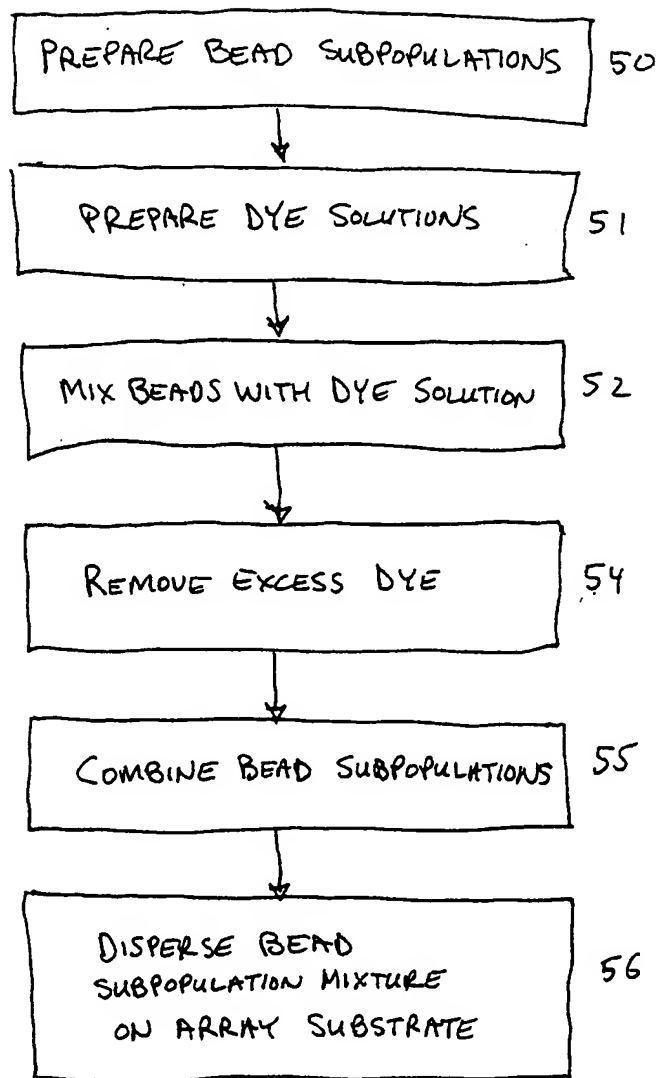 PREPARE BEAD SUBPOPULATIONS 50
PREPARE DYE SOLUTIONS 51
MIX BEADS WITH DYE SOLUTION 52
REMOVE EXCESS DYE 54
COMBINE BEAD SUBPOPULATIONS 55
DISPERSE BEAD
SUBPOPULATION MIXTURE 56
ON ARRAY SUBSTRATE